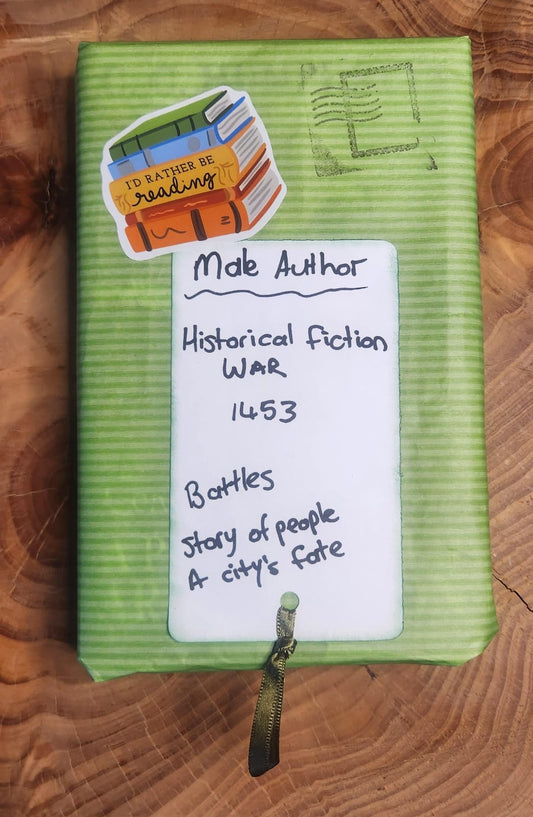 I'D RATHER BE
reading
Male Author
Historical fiction
WAR
1453
Battles
Story of people
A city's fate